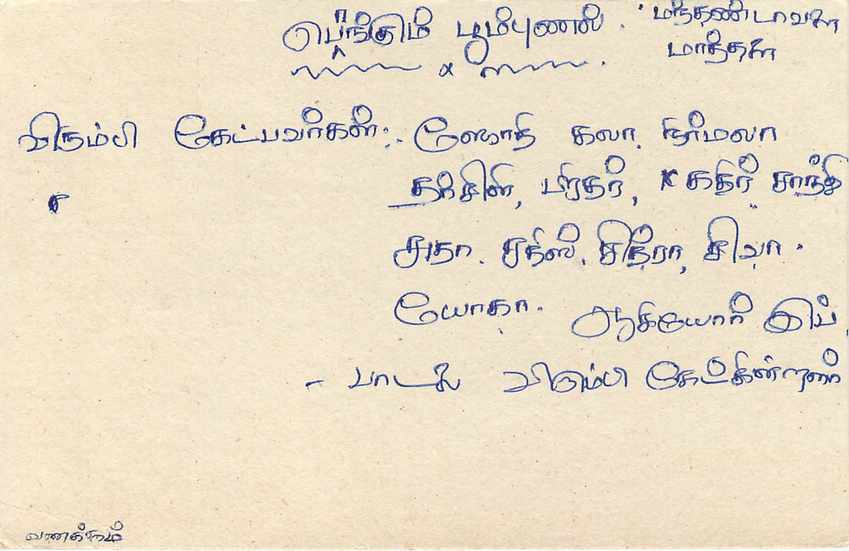 பொங்கும் பூம்புனல். மந்தண்டாவள
மாத்தள
விரும்பி கேட்பவர்கள்:- ஜோதி கலா, நிர்மலா
தர்சினி, பிரதர், கதிர் சாந்தி
சுதா. சதிஸ், சித்ரா, சிவா.
யோகா. ஆகியோர் இப்
- பாடலை விரும்பி கேட்கின்றனர்
வணக்கம்